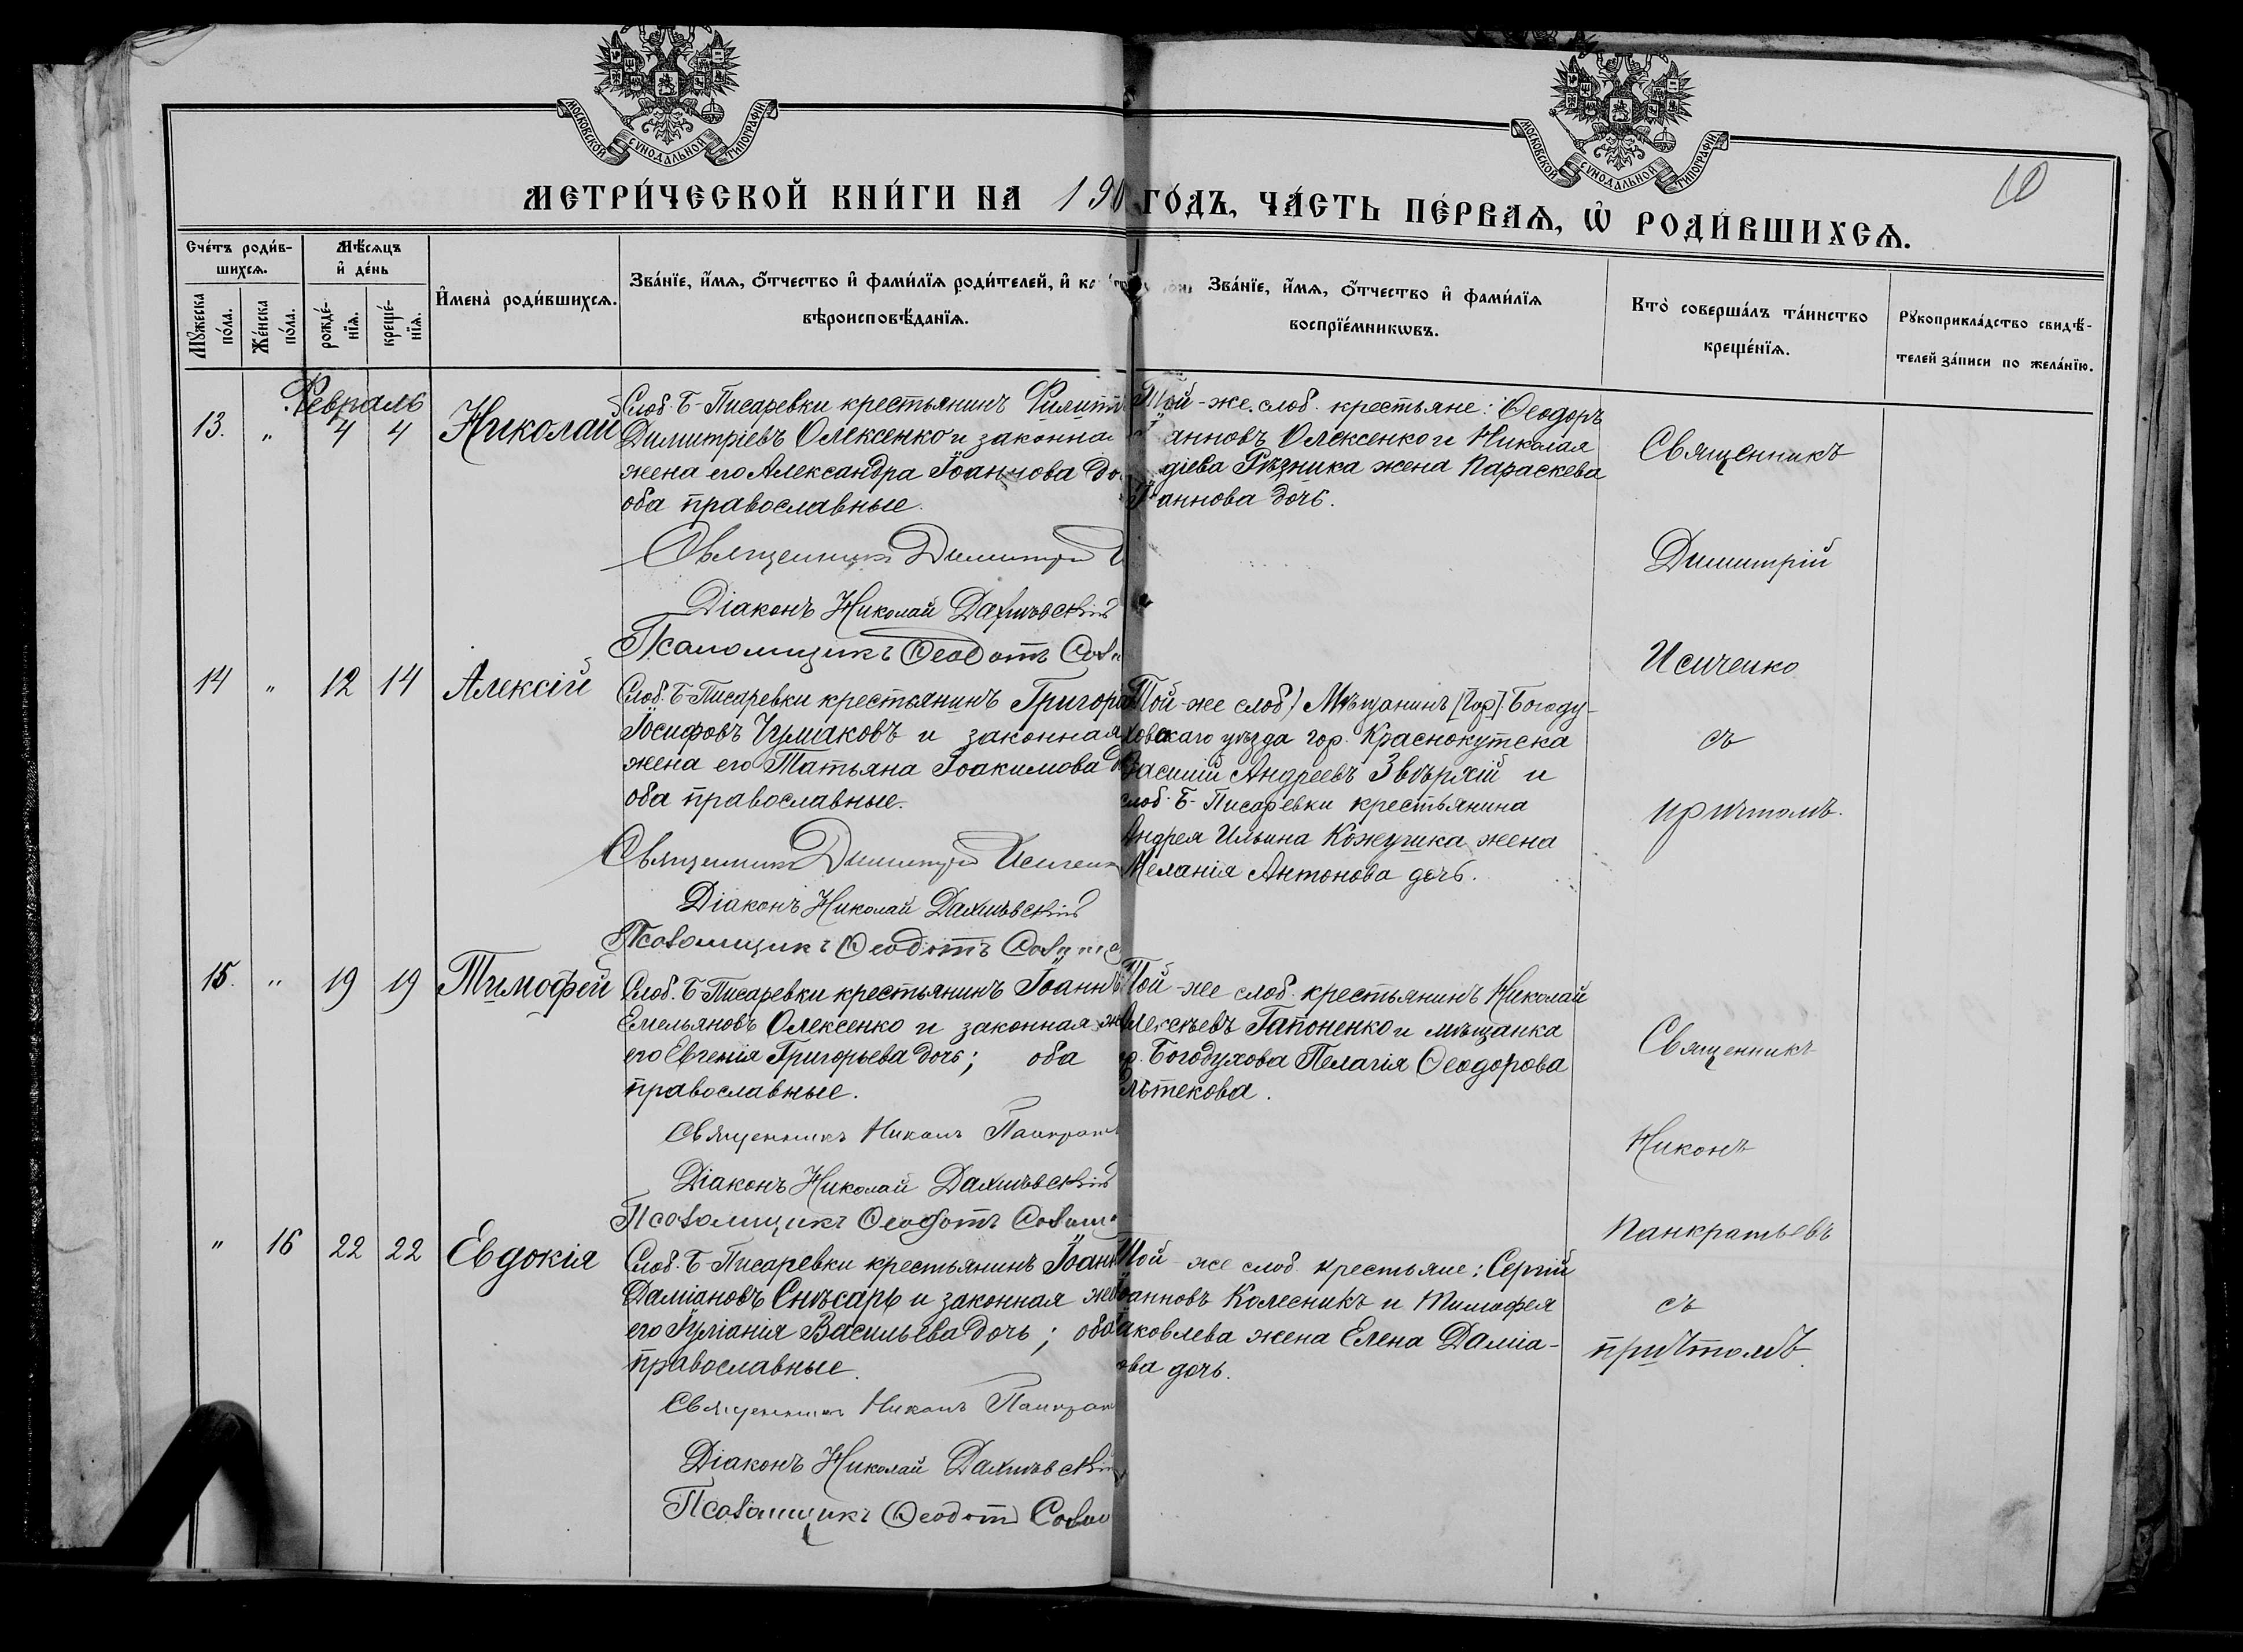 МОСКОВСКОЙ СѴНОДАЛЬНОЙ ТИПОГРАФІИ
МОСКОВСКОЙ СѴНОДАЛЬНОЙ ТИПОГРАФІИ
10
МЕТРИ́ЧЕСКОЙ КНИ́ГИ НА 190
ГО́ДЪ, ЧА́СТЬ ПЕ́РВАѦ, Ѡ РОДИ́ВШИХСѦ.
Сче́тъ роди́в-
шихсѧ.
Мꙋжеска по́ла.
Же́нска по́ла.
Мѣ́сѧцъ
и де́нь
рожде́-нїѧ.
креще́-нїѧ.
И҆мена̀ роди́вшихсѧ.
Зва́нїе, и҆́мѧ, ѻ҆́тчество и҆ фами́лїѧ роди́телей, и҆
вѣроисповѣ́данїѧ.
Зва́нїе, и҆́мѧ, ѻ҆́тчество и҆ фами́лїѧ
воспрїе́мникѡвъ.
Кто̀ соверша́лъ та́инство
креще́нїѧ.
Рꙋкоприкла́дство свидѣ́-
телей за́писи по жела́нїю.
Февраль
13. " 4 4 Николай
Слоб. Б-Писаревки крестьянинъ Филипп
Димитріевъ Олексенко и законна
жена его Александра Іоаннова до
оба православные.
Священникъ Димитрій
Діаконъ Николай
Псаломщикъ Ѳеодотъ
Той-же слоб. крестьяне: Ѳеодоръ
анновъ Олексенко и Николая
діева Рѣзника жена Параскева
Іоаннова дочь.
Священникъ
Димитрій
Исиченко
съ
причтомъ.
14 " 12 14 Алексій
Слоб. Б-Писаревки крестьянинъ Григорі
Іосифовъ Чумаковъ и законная
жена его Татьяна Іоакимова
оба православные.
Священникъ Димитрій Исиченк
Діаконъ Николай
Псаломщикъ Ѳеодотъ
Той-же слоб) Мѣщанинъ [Гор]. Богоду-
ховскаго уѣзда гор. Краснокутска
Василій Андреевъ Звѣряй и
слоб. Б-Писаревки крестьянина
Андрея Ильина Кожушка жена
Меланія Антонова дочь.
15. " 19 19 Тимофей
Слоб. Б-Писаревки крестьянинъ Іоаннъ
Емельяновъ Олексенко и законная же
его Евгенія Григорьева дочь; оба
православные.
Священникъ Никонъ Панкрат
Діаконъ Николай
Псаломщикъ Ѳеодотъ
Той-же слоб. крестьянинъ Николай
Алексѣевъ Гапоненко и мѣщанка
гр. Богодухова Пелагія Ѳеодорова
Священникъ
Никонъ
Панкратьевъ
съ
причтомъ.
" 16 22 22 Евдокія
Слоб. Б-Писаревки крестьянинъ Іоанн
Даміановъ Снѣсарь и законная же
его Іуліанія Васильева дочь; оба
православные.
Священникъ Никонъ Панкрат
Діаконъ Николай
Псаломщикъ Ѳеодотъ
Той-же слоб. крестьяне: Сергій
Іоанновъ Колесникъ и Тимофея
Яковлева жена Елена Даміа-
ова дочь.